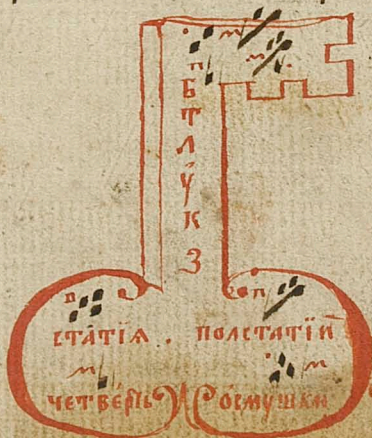 м
п м
Б
т
л
у
к
З
п п
статїя . полстатїи
м м
четверть осмушка